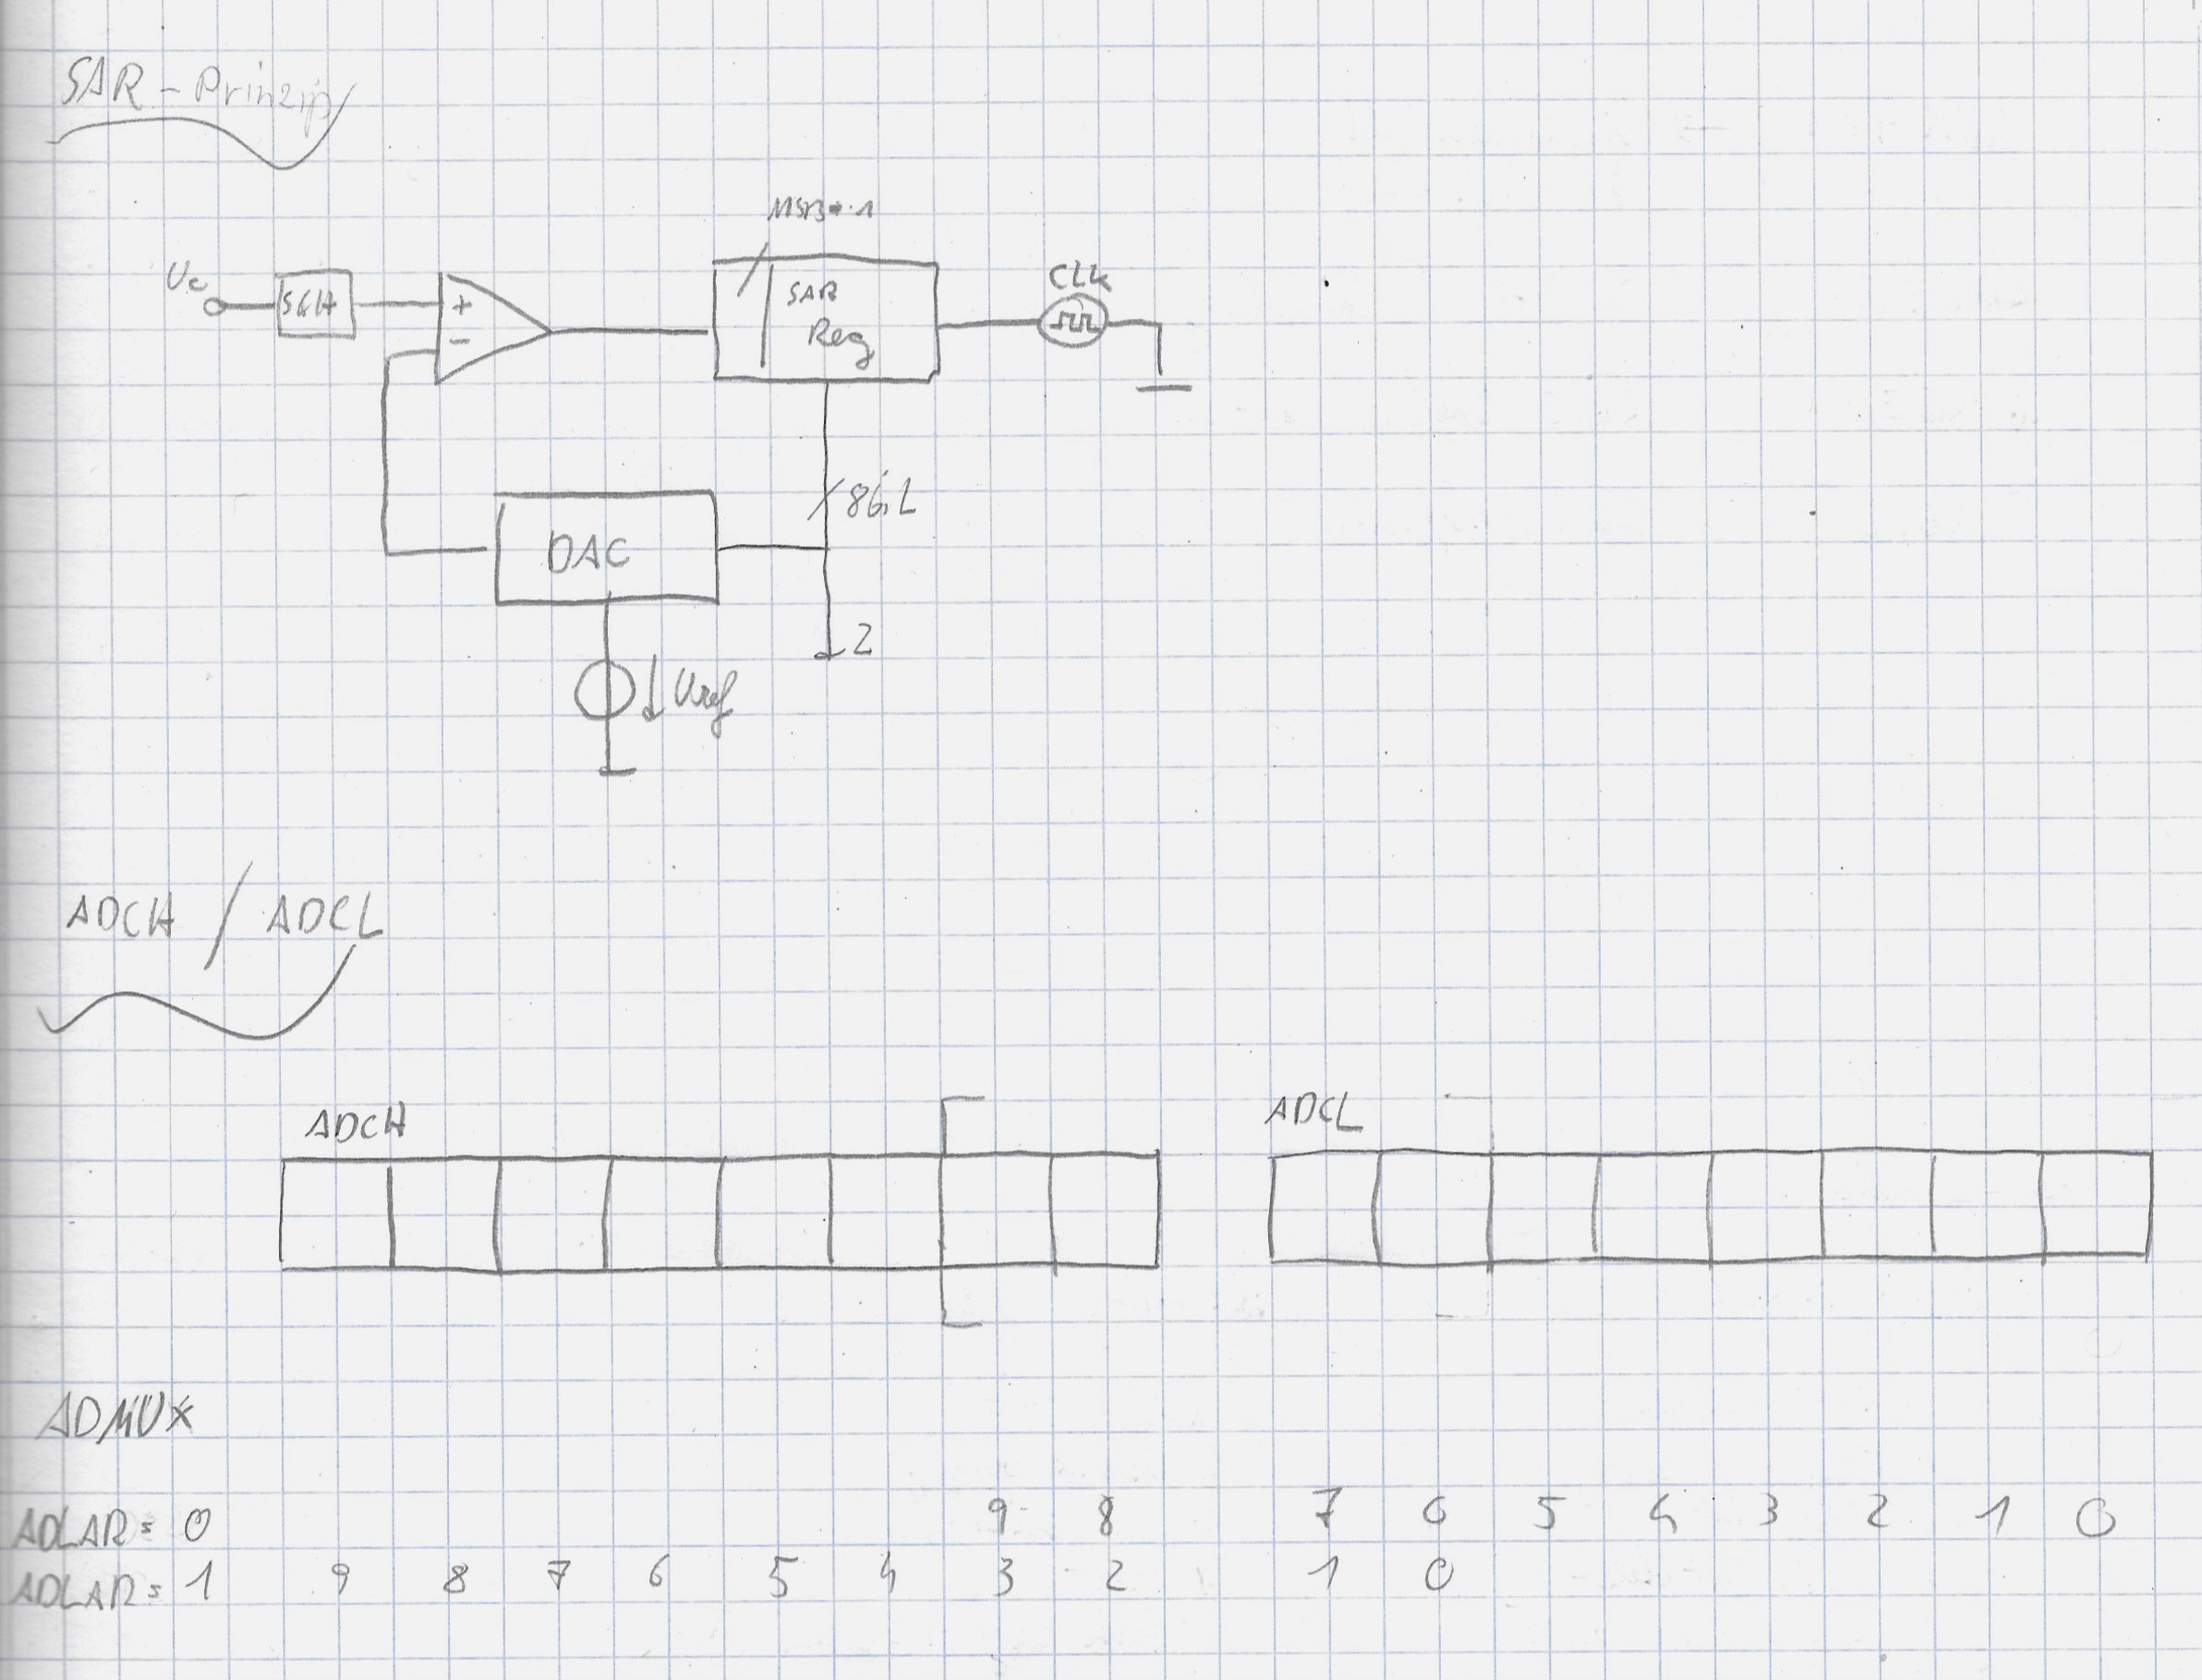 SAR-Prinzip
MSB=1
Ue
S&H
+
-
SAR
Reg
CLK
8bit
DAC
Z
Uref
ADCH / ADCL
ADCH
ADCL
ADMUX
ADLAR = 0 9 8 7 6 5 4 3 2 1 0
ADLAR = 1 9 8 7 6 5 4 3 2 1 0